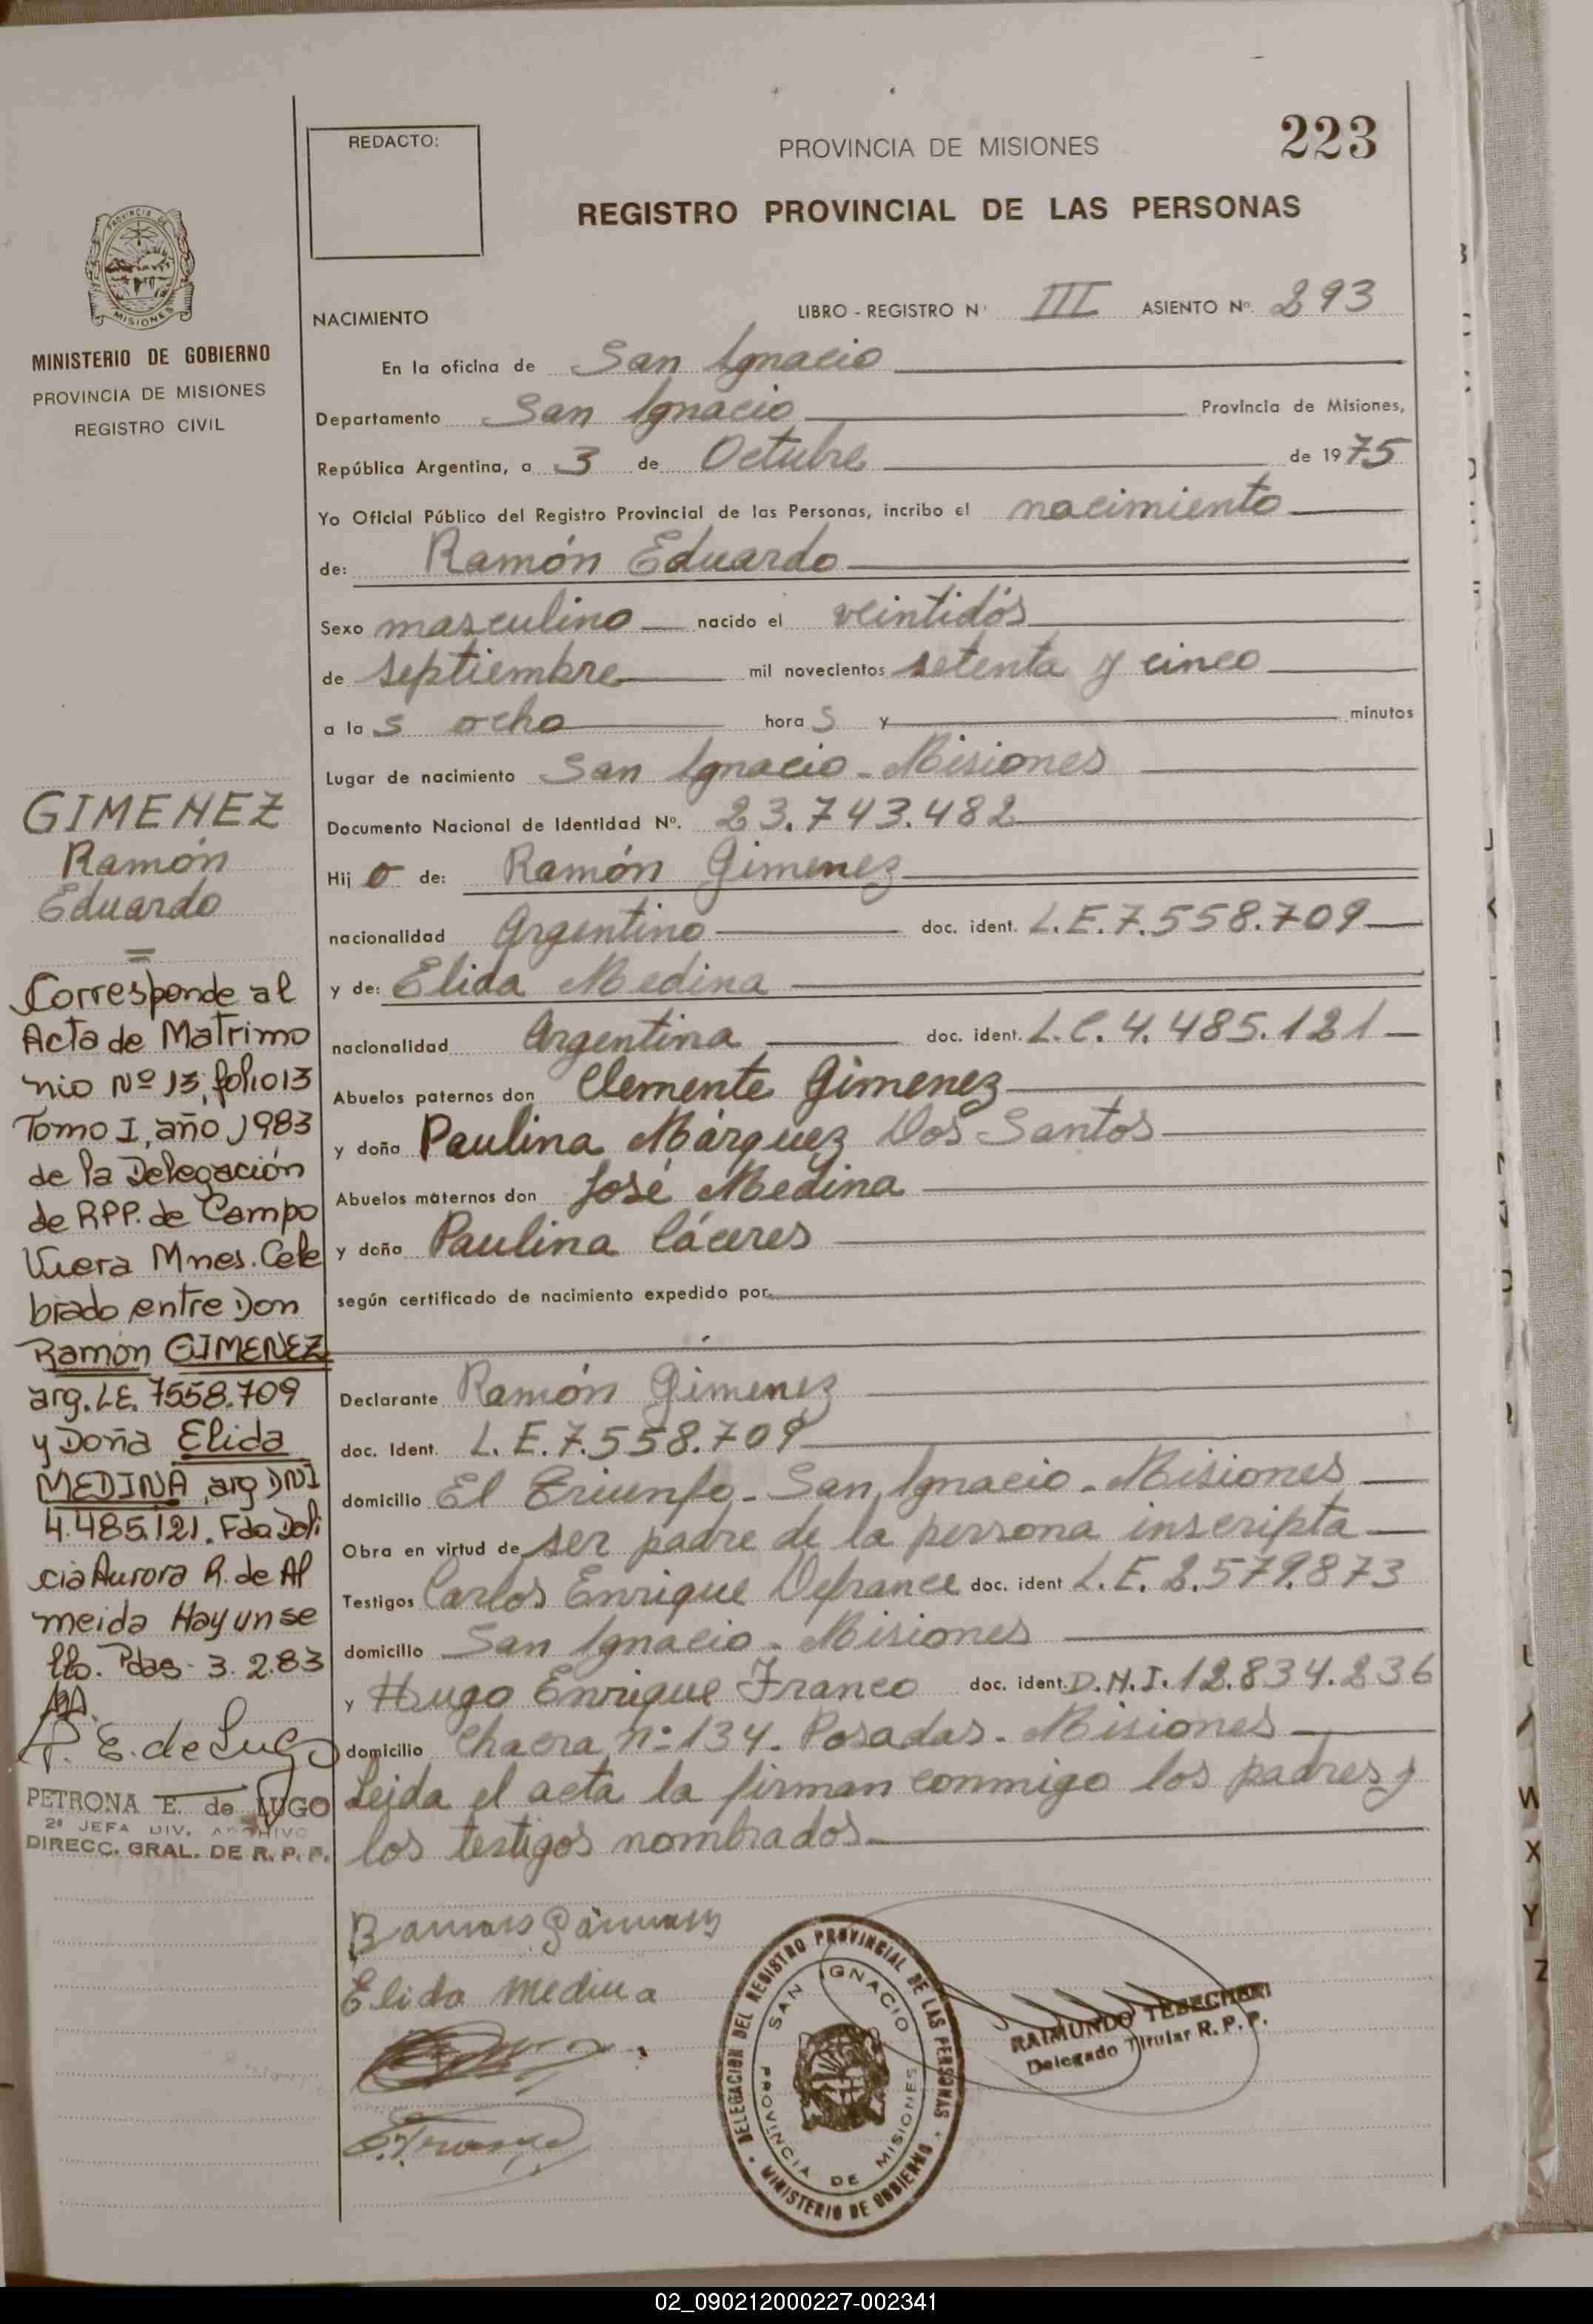 REDACTO:
PROVINCIA DE MISIONES
223
REGISTRO PROVINCIAL DE LAS PERSONAS
PROVINCIA DE
MISIONES
MINISTERIO DE GOBIERNO
PROVINCIA DE MISIONES
REGISTRO CIVIL
NACIMIENTO LIBRO - REGISTRO Nº III ASIENTO Nº 293
En la oficina de San Ignacio
Departamento San Ignacio Provincia de Misiones,
República Argentina, a 3 de Octubre de 1975
Yo Oficial Público del Registro Provincial de las Personas, incribo el nacimiento
de: Ramón Eduardo
Sexo masculino nacido el veintidós
de septiembre mil novecientos setenta y cinco
a las ocho horas y minutos
Lugar de nacimiento San Ignacio - Misiones
Documento Nacional de Identidad Nº. 23.743.482
Hijo de: Ramón Gimenez
nacionalidad Argentino doc. ident. L.E.7.558.709
y de: Elida Medina
nacionalidad Argentina doc. ident. L.C. 4.485.121
Abuelos paternos don Clemente Gimenez
y doña Paulina Márquez Dos Santos
Abuelos maternos don José Medina
y doña Paulina Cáceres
según certificado de nacimiento expedido por
Declarante Ramón Gimenez
doc. Ident. L.E.7.558.709
domicilio El Triunfo - San Ignacio - Misiones
Obra en virtud de ser padre de la persona inscripta
Testigos Carlos Enrique Defrance doc. ident L.E. 2.579.873
domicilio San Ignacio - Misiones
y Hugo Enrique Franco doc. ident. D.N.I. 12.834.236
domicilio Chacra nº 134 - Posadas - Misiones
Leida el acta la firman conmigo los padres y
los testigos nombrados
GIMENEZ
Ramón
Eduardo
=
Corresponde al
Acta de Matrimo
nio Nº 13, folio 13
Tomo I, año 1983
de la Delegación
de RPP. de Campo
Viera Mnes. Cele
brado entre Don
Ramón GIMENEZ
arg. L.E. 7558.709
y Doña Elida
MEDINA, arg DNI
4.485.121. Fda Deli
cia Aurora R. de Al
meida Hay un se
llo. Pdas - 3.2.83
P. E. de Lugo
PETRONA E. de LUGO
2ª JEFA DIV. ARCHIVO
DIRECC. GRAL. DE R. P. P.
Ramon Gimenez
Elida Medina
DELEGACION DEL REGISTRO PROVINCIAL DE LAS PERSONAS
SAN IGNACIO
PROVINCIA DE MISIONES
MINISTERIO DE GOBIERNO
RAIMUNDO TEBECHERI
Delegado Titular R. P. P.
W
X
Y
Z
02_090212000227-002341